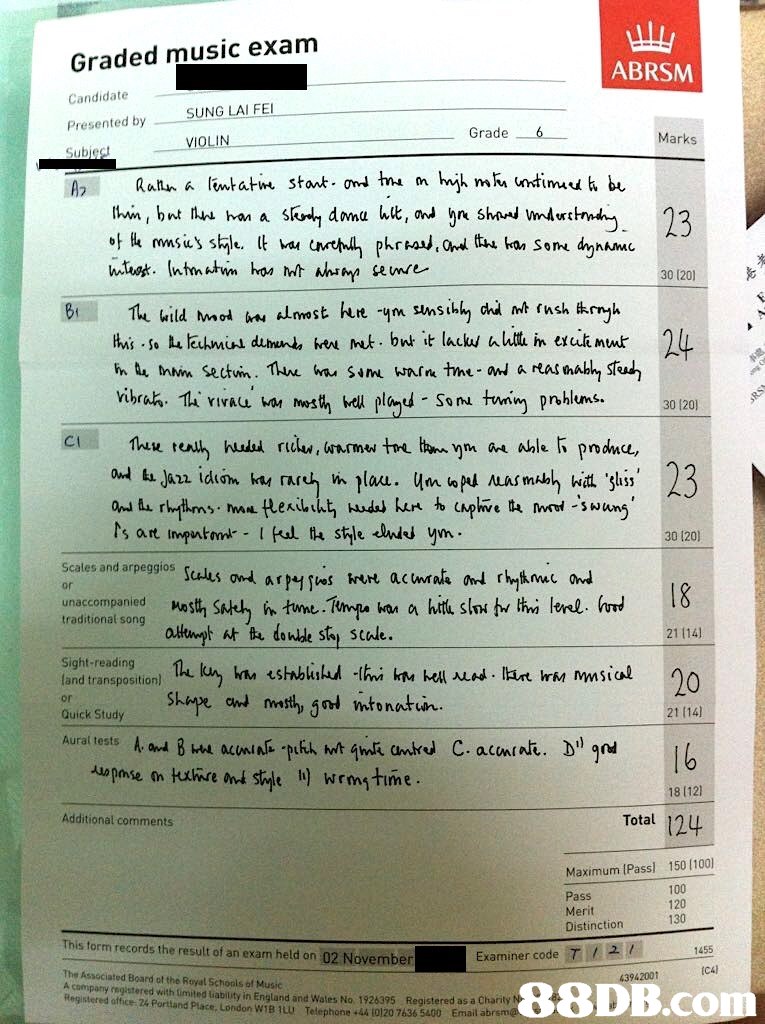 Graded music exam
ABRSM
Candidate
Presented by SUNG LAI FEI
Subject VIOLIN Grade 6
Marks
A2 Rather a tentative start - and tone on high notes continued to be
thin, but there was a steady dance lilt, and you showed understanding
of the music's style. It was carefully phrased, and there was some dynamic
interest. Intonation was not always secure
23
30 (20)
B1 The wild mood was almost here - you sensibly did not rush through
this - so the technical demands were met - but it lacked a little in excitement
in the main section. There was some warm tone - and a reasonably steady
vibrato. The vivace was mostly well played - some tuning problems.
24
30 (20)
C1 These really needed richer, warmer tone than you are able to produce,
and the jazz idiom was rarely in place. You coped reasonably with 'gliss'
and the rhythms. more flexibility needed here to capture the mood - 'swung'
are important - I feel the style eluded you.
23
30 (20)
Scales and arpeggios
or
unaccompanied
traditional song
Scales and arpeggios were accurate and rhythmic and
mostly safely in tune. Tempo was a little slow for this level. Good
attempt at the double stop scale.
18
21 (14)
Sight-reading
(and transposition)
or
Quick Study
The key was established - this was well read. There was musical
shape and mostly good intonation.
20
21 (14)
Aural tests A. and B were accurate - pitch not quite centred C. accurate. D") good
response on texture and style 11) wrong time.
16
18 (12)
Additional comments
Total 124
Maximum (Pass) 150 (100)
Pass 100
Merit 120
Distinction 130
This form records the result of an exam held on 02 November Examiner code T / 2 / 1455
43942001 (C4)
The Associated Board of the Royal Schools of Music
A company registered with limited liability in England and Wales No. 1926395 Registered as a Charity
Registered office: 24 Portland Place, London W1B 1LU Telephone +44 (0)20 7636 5400 Email abrsm@
88DB.com